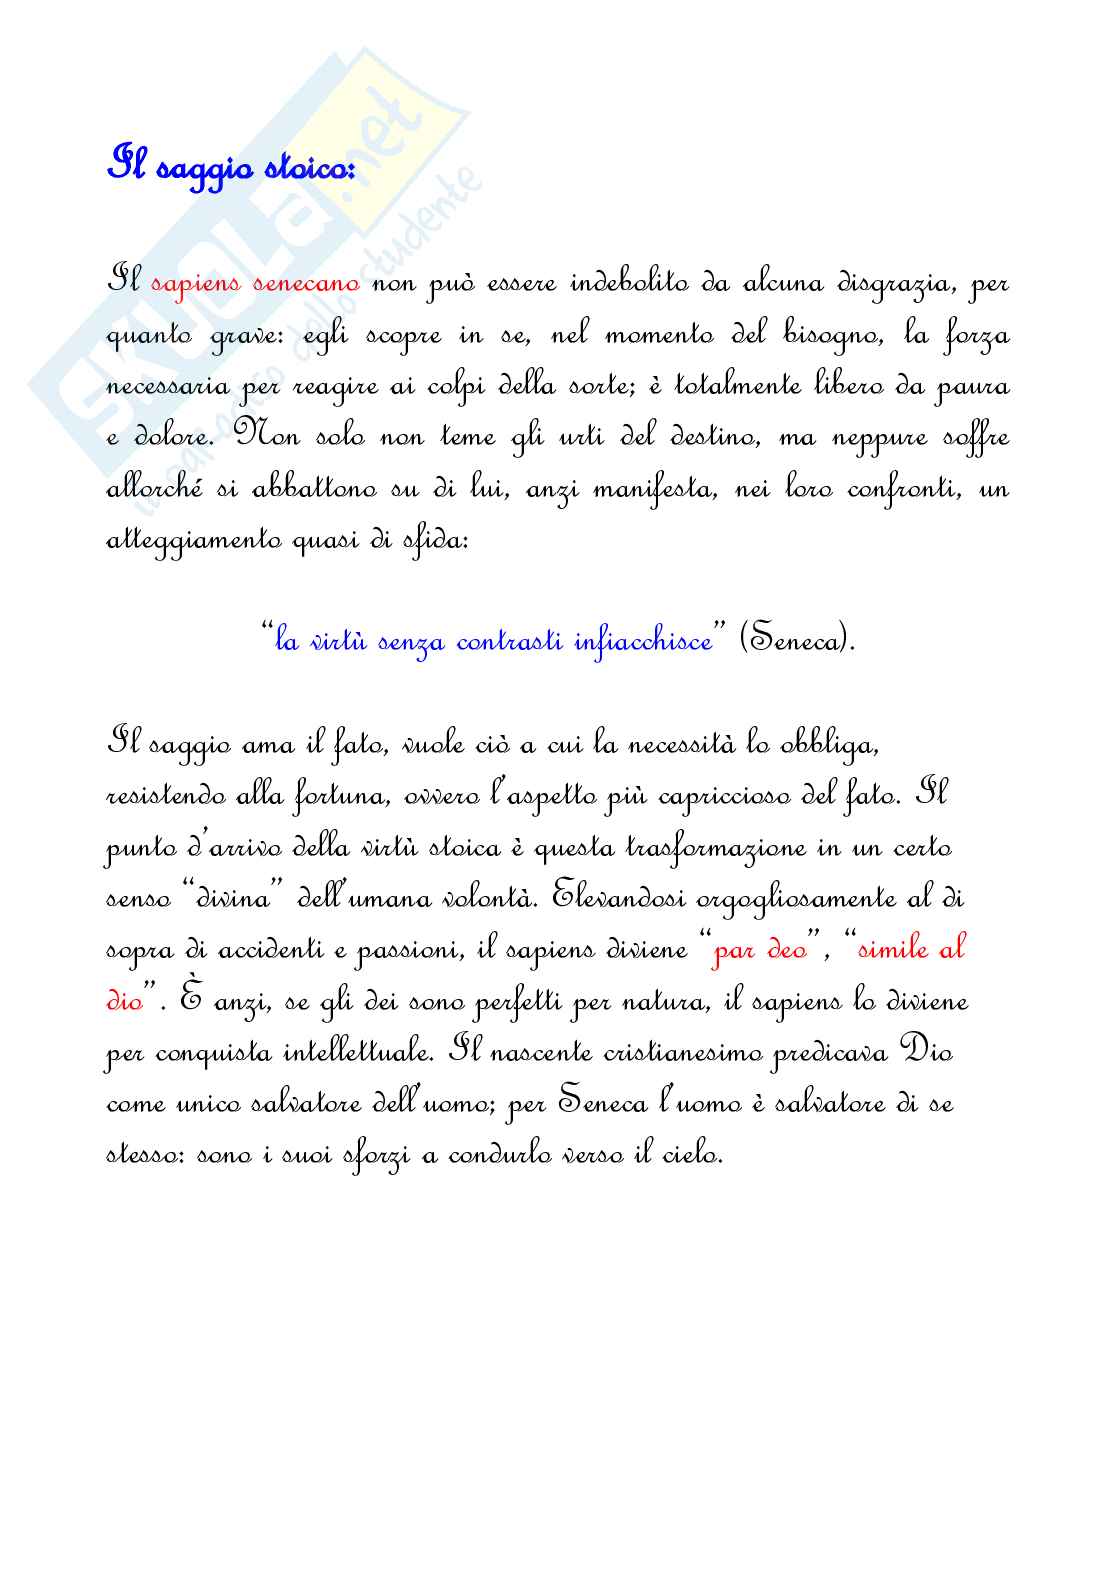 Il saggio stoico:
Il sapiens senecano non può essere indebolito da alcuna disgrazia, per
quanto grave: egli scopre in se, nel momento del bisogno, la forza
necessaria per reagire ai colpi della sorte; è totalmente libero da paura
e dolore. Non solo non teme gli urti del destino, ma neppure soffre
allorché si abbattono su di lui, anzi manifesta, nei loro confronti, un
atteggiamento quasi di sfida:
“la virtù senza contrasti infiacchisce” (Seneca).
Il saggio ama il fato, vuole ciò a cui la necessità lo obbliga,
resistendo alla fortuna, ovvero l’aspetto più capriccioso del fato. Il
punto d’arrivo della virtù stoica è questa trasformazione in un certo
senso “divina” dell’umana volontà. Elevandosi orgogliosamente al di
sopra di accidenti e passioni, il sapiens diviene “par deo”, “simile al
dio”. È anzi, se gli dei sono perfetti per natura, il sapiens lo diviene
per conquista intellettuale. Il nascente cristianesimo predicava Dio
come unico salvatore dell’uomo; per Seneca l’uomo è salvatore di se
stesso: sono i suoi sforzi a condurlo verso il cielo.
SKUOLA.net
dello studente